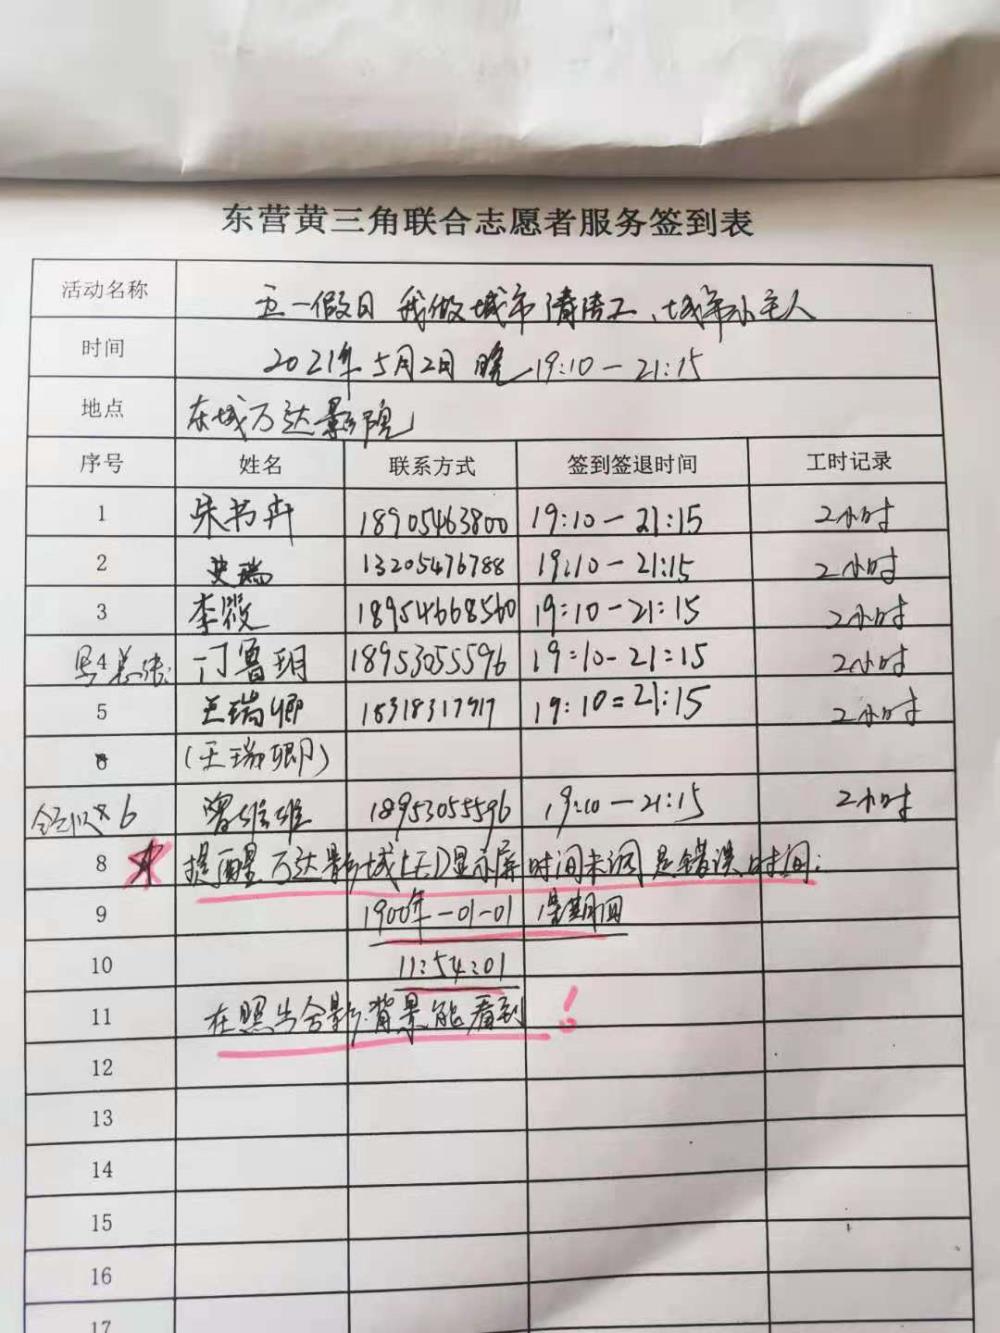 东营黄三角联合志愿者服务签到表
活动名称 五一假日 我做城市清洁工、城市小主人
时间 2021年5月2日 晚 19:10-21:15
地点 东城万达影院
序号 姓名 联系方式 签到签退时间 工时记录
1 朱书卉 18905463800 19:10-21:15 2小时
2 史瑞 13205476788 19:10-21:15 2小时
3 李毅 18954668560 19:10-21:15 2小时
4 门鲁玥 18953055596 19:10-21:15 2小时
5 王瑞卿 18318317917 19:10=21:15 2小时
(王瑞卿)
6 18953055596 19:10-21:15 2小时
8 提醒万达影城LED显示屏时间未调是错误时间:
9 1900年-01-01 星期四
10 11:54:01
11 在照片合影背景能看到!
12
13
14
15
16
17